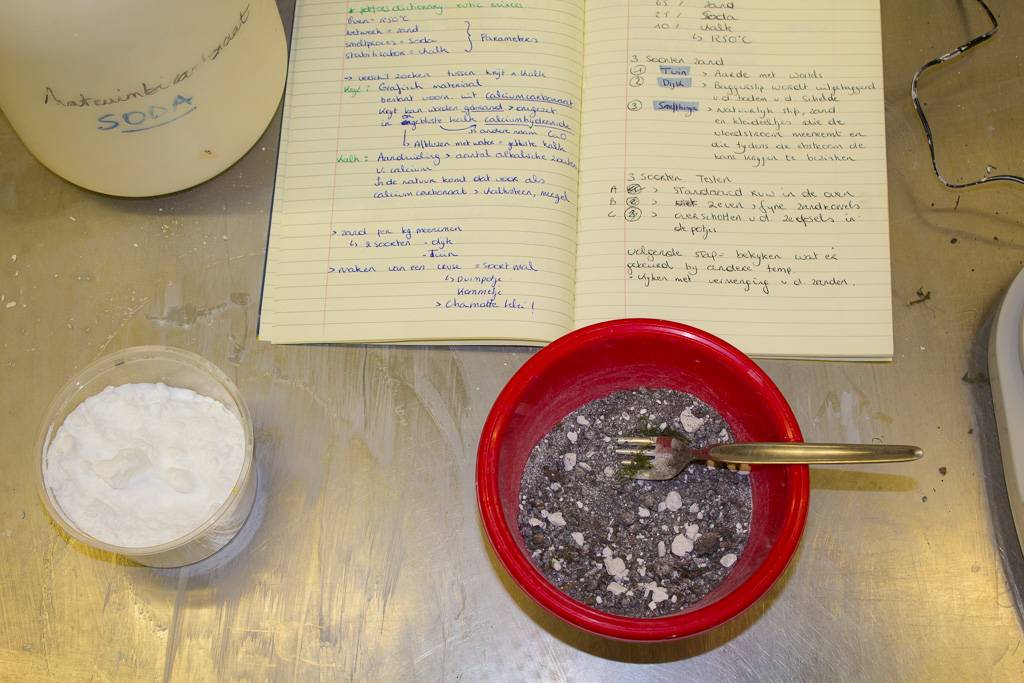 Natriumbicarbonaat
SODA
Oven = 1250°C
netwerk = zand
smeltproces = Soda
stabilisatie = kalk
Parameters
→ verschil zoeken tussen krijt & kalk
Krijt: Grafisch materiaal
bestaat voorn. uit calciumcarbonaat
krijt kan worden gebrand > omgezet
in ongebluste kalk calciumhydroxide
→ andere naam CaO
→ Afblussen met water = gebluste kalk
Kalk: Aanduiding > aantal alkalische zouten
v. calcium
In de natuur komt dat voor als
calciumcarbonaat > kalksteen, mergel
> zand per kg meenemen
↳ 2 soorten - dijk
- Tuin
> maken van een cruse = soort mal
↳ Duimpotje
Kommetje
> Chamotte klei!
65 % zand
25 % Soda
10 % kalk
↳ 1250°C
3 Soorten zand
① Tuin > Aarde met wortels
② Dijk > Baggerslib wordt uitgebaggerd
v.d. bodem v.d. Schelde
③ > Natuurlijk slib, zand
en kleideeltjes die de
vloedstroom meeneemt en
die tijdens de ebstroom de
kans krijgen te bezinken
3 Soorten Testen
A ① > standaard ruw in de oven
B ② > zeven > fijne zandkorrels
C ③ > overschotten v.d. zeefsels in
de potjes
volgende stap = bekijken wat er
gebeurd bij andere temp.
- kijken met vermenging v.d. zanden.